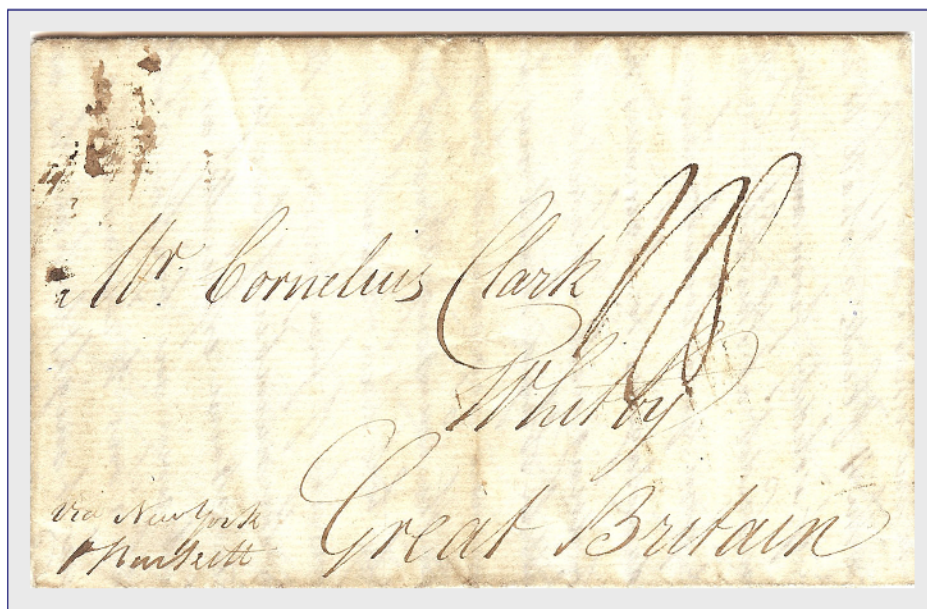 Mr. Cornelius Clark
Whitby
Great Britain
via New York